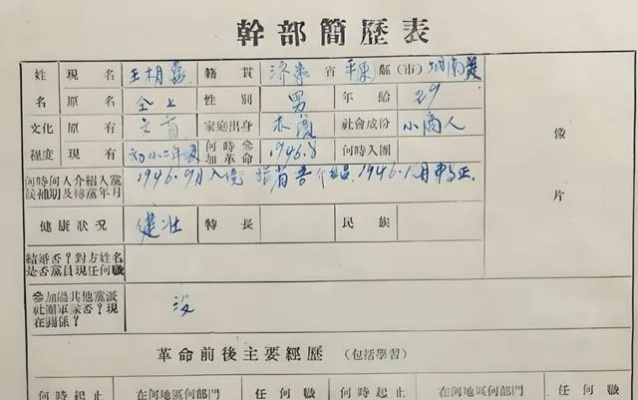 幹部簡歷表
姓 現名 王相 籍貫 省 縣(市)
名 原名 仝上 性別 男 年齡 29
文化 原有 文盲 家庭出身 社會成份 小商人
程度 現有 初小二年 何時參加革命 1946.8 何時入團
何時何人介紹入黨候補期及轉黨年月 1946.9月入 介 1946.1 月
健康狀況 健壯 特長 民族
結婚否?對方姓名是否黨員現任何職
參加過其他黨派社團軍家否?現在關係? 沒
像片
革命前後主要經歷 (包括學習)
何時起止 在何地區何部門 任何職 何時起止 在何地區何部門 任何職